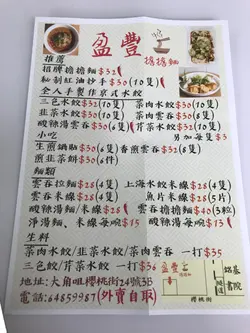 盈豐
擔擔麵
推薦
招牌擔擔麵$32
秘制紅油炒手$30(10隻)
全人手製作京式水餃
三色水餃$32(10隻) 菜肉水餃$30(10隻)
韭菜水餃$30(10隻) 菜肉雲吞$30(10隻)
酸辣湯雲吞$36(6隻) 芹菜水餃$30(10隻)
另加每隻$3
小吃
生煎鍋貼$30(6隻) 香煎雲吞$32(8隻)
煎韭菜餅$30(6件)
麵類
雲吞拉麵$28(4隻) 上海水餃米線$28(4隻)
雲吞米線$28(4隻) 魚片米線$28(5隻)
炸醬麵/米線$28 酸辣湯麵/米線$28
淨湯麵、米線每碗$15 酸辣湯每碗$13
生料
菜肉水餃/韭菜水餃/菜肉雲吞 一打$35
三色餃/芹菜水餃 一打$36
地址:大角咀櫻桃街24號3B
電話:64859987(外賣自取)
盈豐
銘基書院
櫻桃街